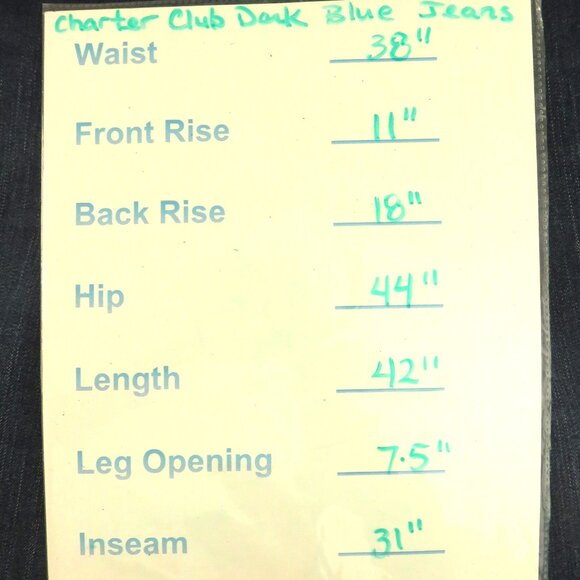 Charter Club Dark Blue Jeans
Waist 38"
Front Rise 11"
Back Rise 18"
Hip 44"
Length 42"
Leg Opening 7.5"
Inseam 31"